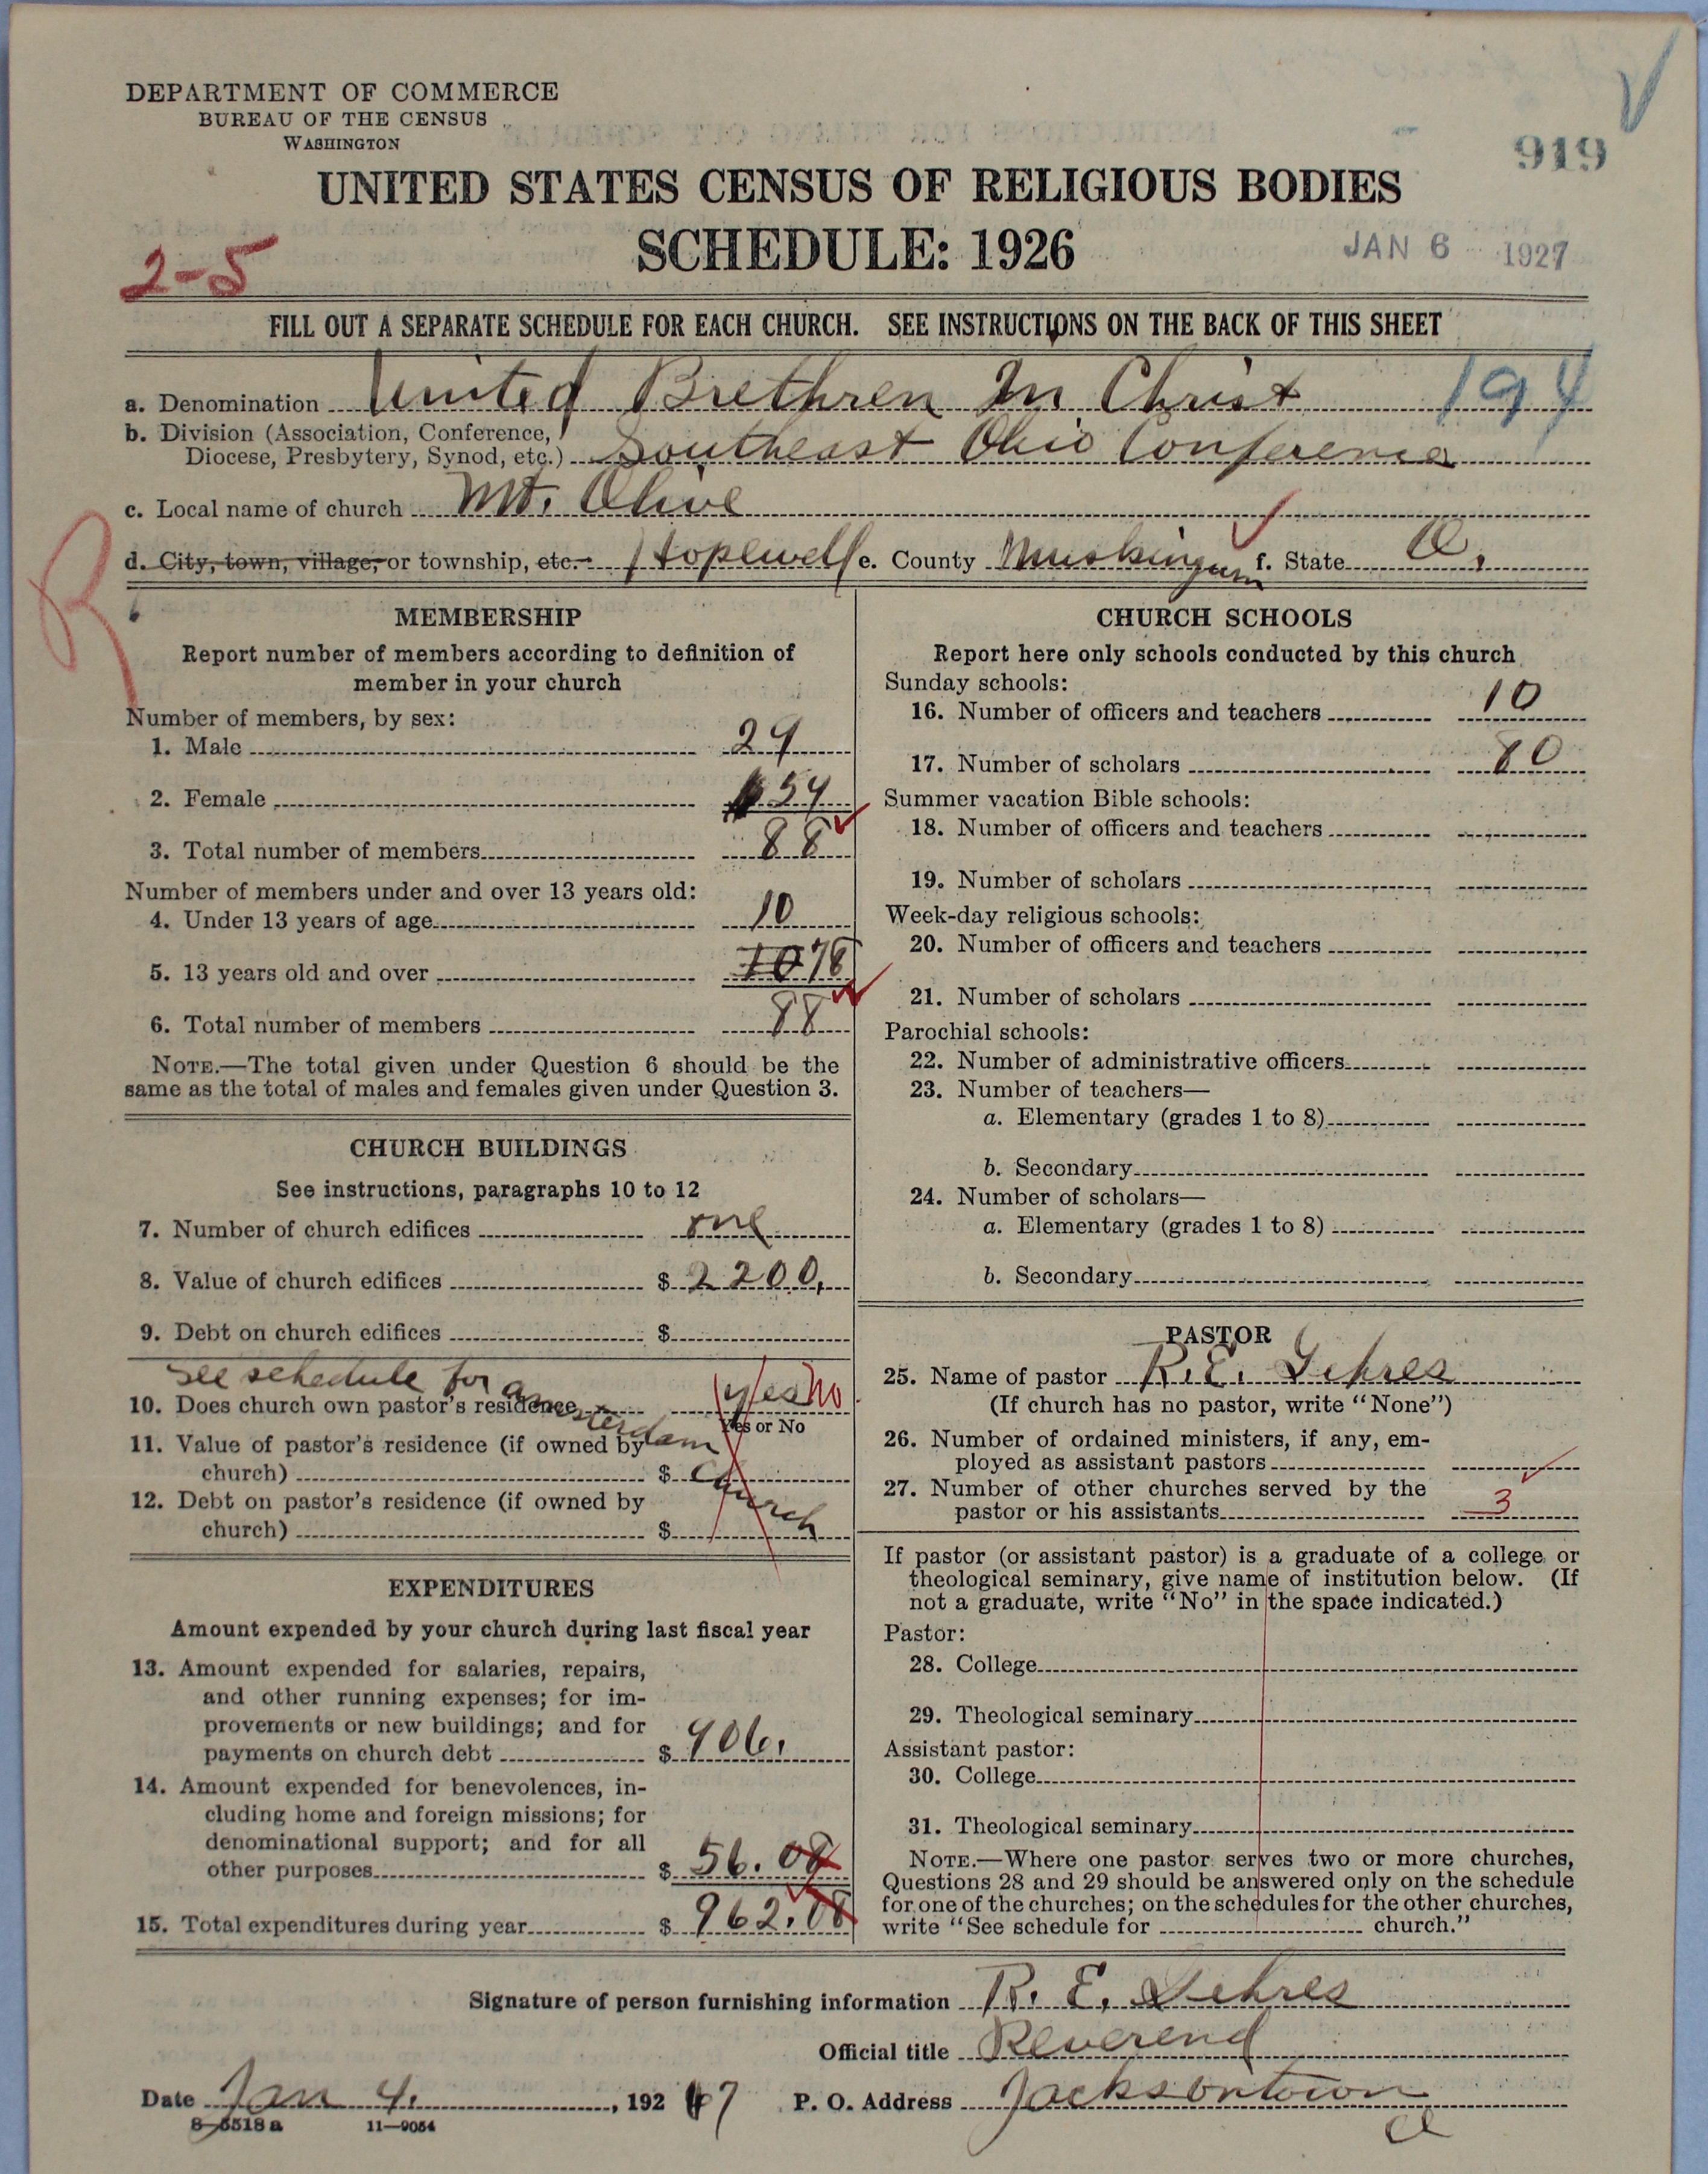 DEPARTMENT OF COMMERCE
BUREAU OF THE CENSUS
WASHINGTON
919
UNITED STATES CENSUS OF RELIGIOUS BODIES
SCHEDULE: 1926
JAN 6 1927
2-5
FILL OUT A SEPARATE SCHEDULE FOR EACH CHURCH. SEE INSTRUCTIONS ON THE BACK OF THIS SHEET
a. Denomination United Brethren In Christ 194
b. Division (Association, Conference,
Diocese, Presbytery, Synod, etc.) Southeast Ohio Conference
c. Local name of church Mt. Olive
R
d. City, town, village, or township, etc. Hopewell e. County Muskingum f. State O.
MEMBERSHIP
Report number of members according to definition of
member in your church
Number of members, by sex:
1. Male
2. Female 54
3. Total number of members 88
Number of members under and over 13 years old:
4. Under 13 years of age 10
5. 13 years old and over 70 78
6. Total number of members 88
NOTE.—The total given under Question 6 should be the
same as the total of males and females given under Question 3.
CHURCH BUILDINGS
See instructions, paragraphs 10 to 12
7. Number of church edifices one
8. Value of church edifices $ 2200.
9. Debt on church edifices $
See schedule for Amsterdam church
10. Does church own pastor's residence yes no
Yes or No
11. Value of pastor's residence (if owned by
church) $
12. Debt on pastor's residence (if owned by
church) $
EXPENDITURES
Amount expended by your church during last fiscal year
13. Amount expended for salaries, repairs,
and other running expenses; for im-
provements or new buildings; and for
payments on church debt $ 906.
14. Amount expended for benevolences, in-
cluding home and foreign missions; for
denominational support; and for all
other purposes $ 56.08
15. Total expenditures during year $ 962.08
CHURCH SCHOOLS
Report here only schools conducted by this church
Sunday schools:
16. Number of officers and teachers 10
17. Number of scholars 80
Summer vacation Bible schools:
18. Number of officers and teachers
19. Number of scholars
Week-day religious schools:
20. Number of officers and teachers
21. Number of scholars
Parochial schools:
22. Number of administrative officers
23. Number of teachers—
a. Elementary (grades 1 to 8)
b. Secondary
24. Number of scholars—
a. Elementary (grades 1 to 8)
b. Secondary
PASTOR
25. Name of pastor R. E.
(If church has no pastor, write "None")
26. Number of ordained ministers, if any, em-
ployed as assistant pastors
27. Number of other churches served by the
pastor or his assistants 3
If pastor (or assistant pastor) is a graduate of a college or
theological seminary, give name of institution below. (If
not a graduate, write "No" in the space indicated.)
Pastor:
28. College
29. Theological seminary
Assistant pastor:
30. College
31. Theological seminary
NOTE.—Where one pastor serves two or more churches,
Questions 28 and 29 should be answered only on the schedule
for one of the churches; on the schedules for the other churches,
write "See schedule for church."
Signature of person furnishing information R. E.
Official title Reverend
Date Jan 4. , 1927 P. O. Address Jacksontown
O
8-5518a 11—9054